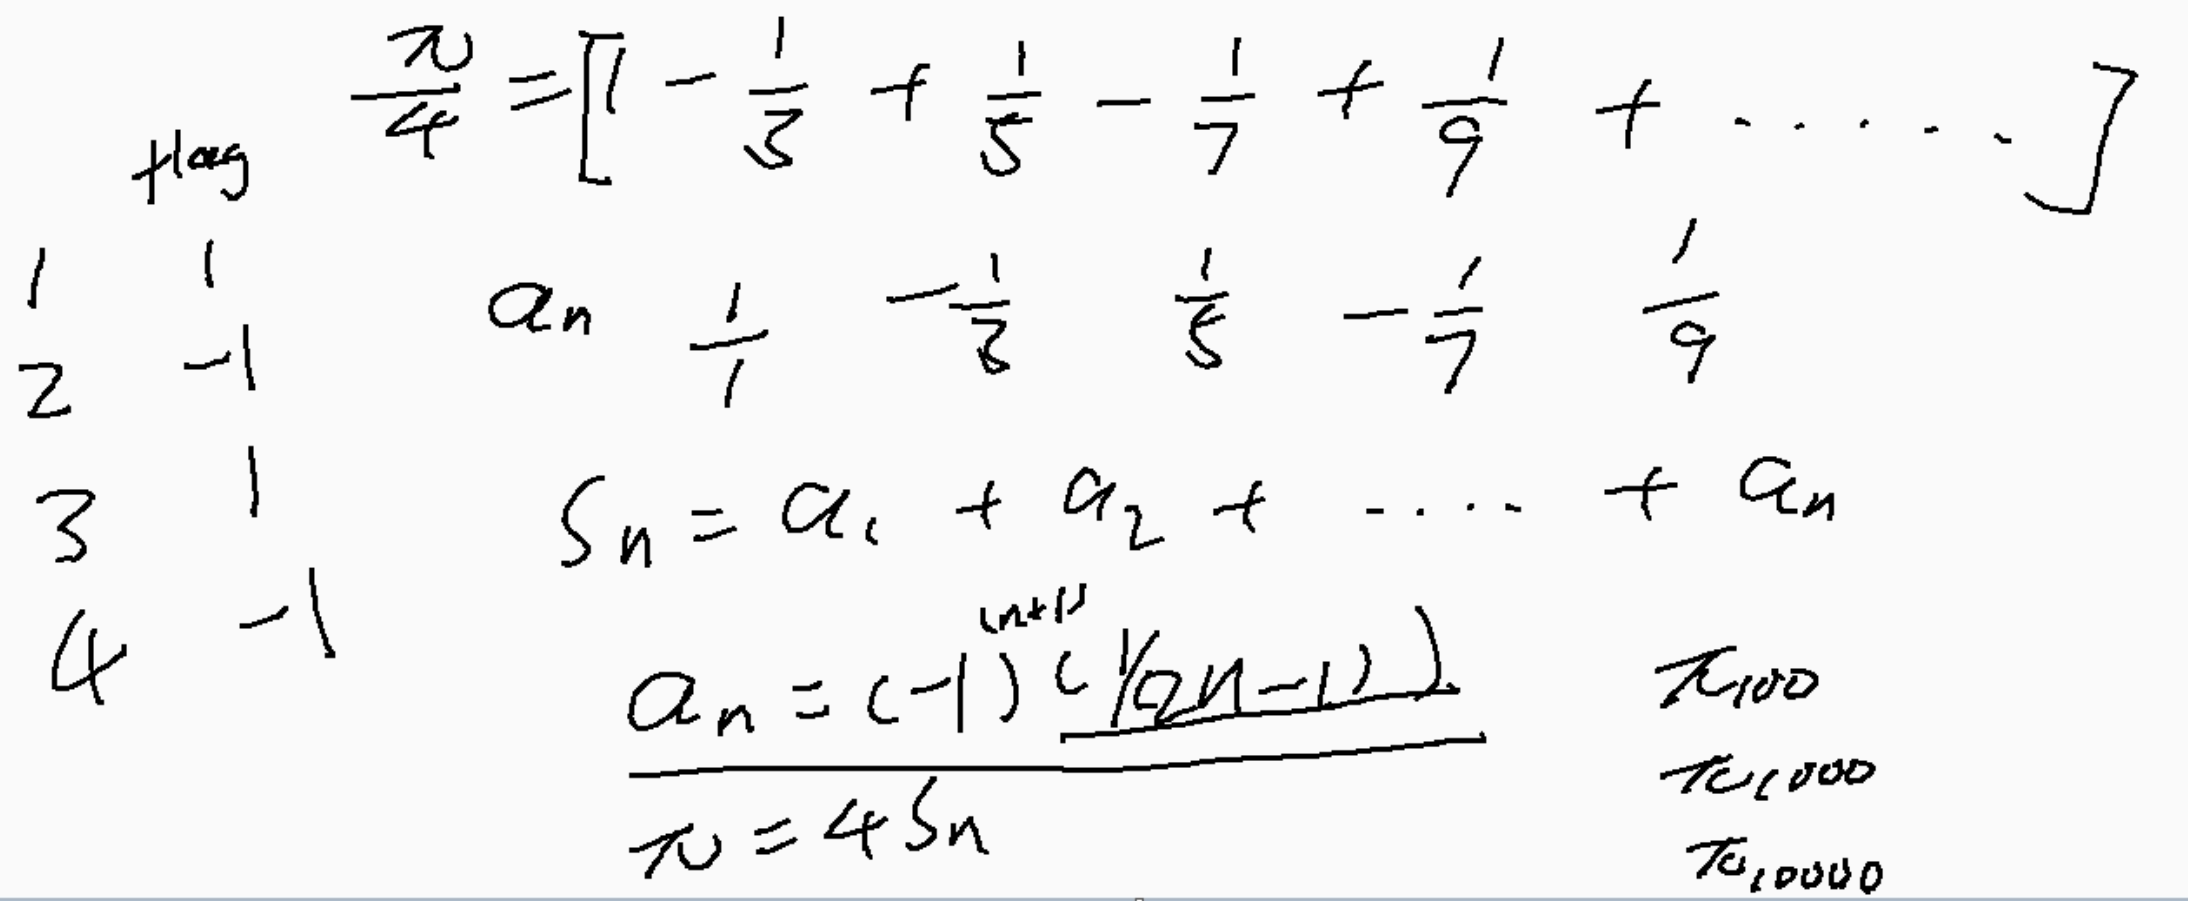 π/4 = [1 - 1/3 + 1/5 - 1/7 + 1/9 + ......]
flag
1 1
2 -1
3 1
4 -1
aₙ 1/1 -1/3 1/5 -1/7 1/9
Sₙ = a₁ + a₂ + ..... + aₙ
aₙ = (-1)⁽ⁿ⁺¹⁾ (1/(2n-1))
π = 4Sₙ
π₁₀₀
π₁₀₀₀
π₁₀₀₀₀